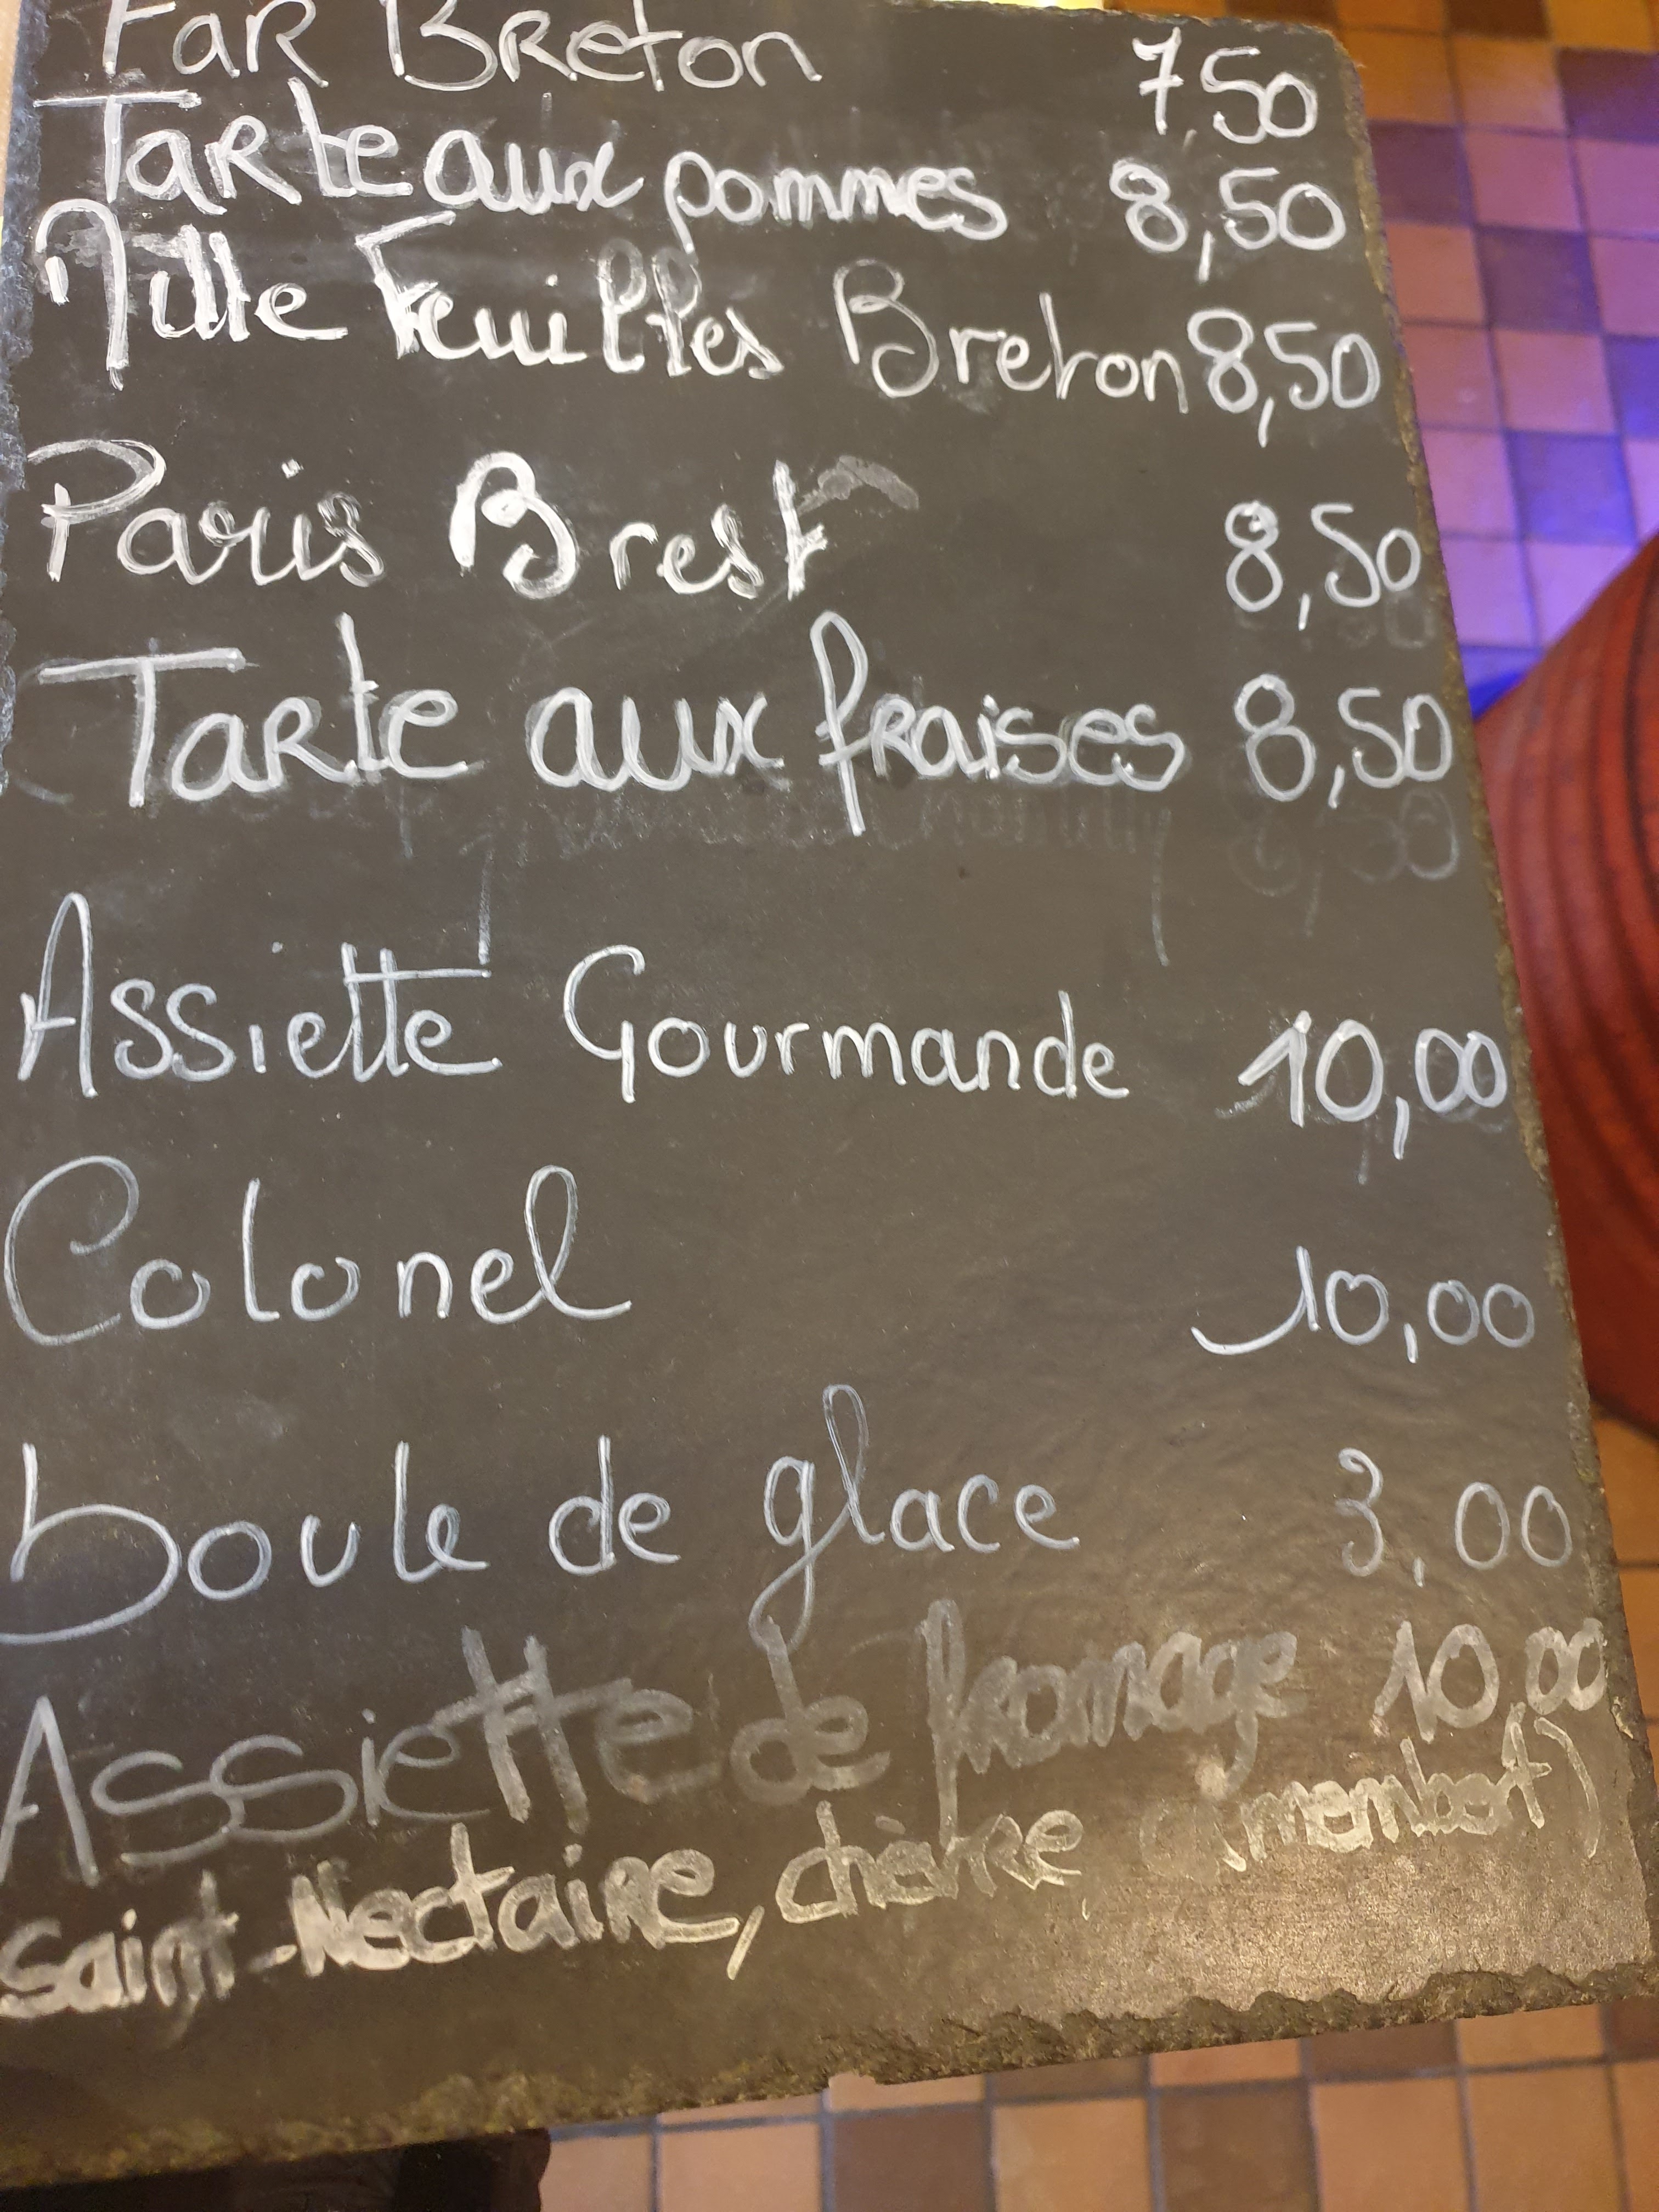 Far Breton 7,50
Tarte aux pommes 8,50
Mille Feuilles Breton 8,50
Paris Brest 8,50
Tarte aux fraises 8,50
Assiette Gourmande 10,00
Colonel 10,00
boule de glace 3,00
Assiette de fromage 10,00
Saint-Nectaire, chèvre, camembert)